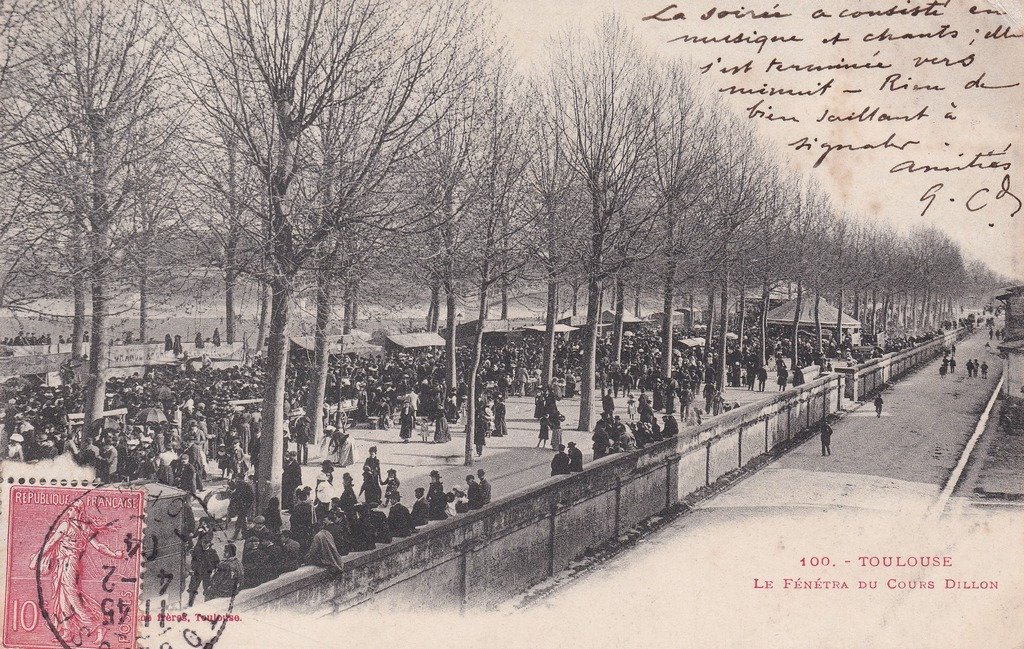 La soirée a consisté en
musique et chants ; elle
s'est terminée vers
minuit - Rien de
bien saillant à
signaler
Amitiés
G. C
100. - TOULOUSE
LE FÉNÉTRA DU COURS DILLON
RÉPUBLIQUE FRANÇAISE
10
POSTES
11 45
2
04
frères, Toulouse.